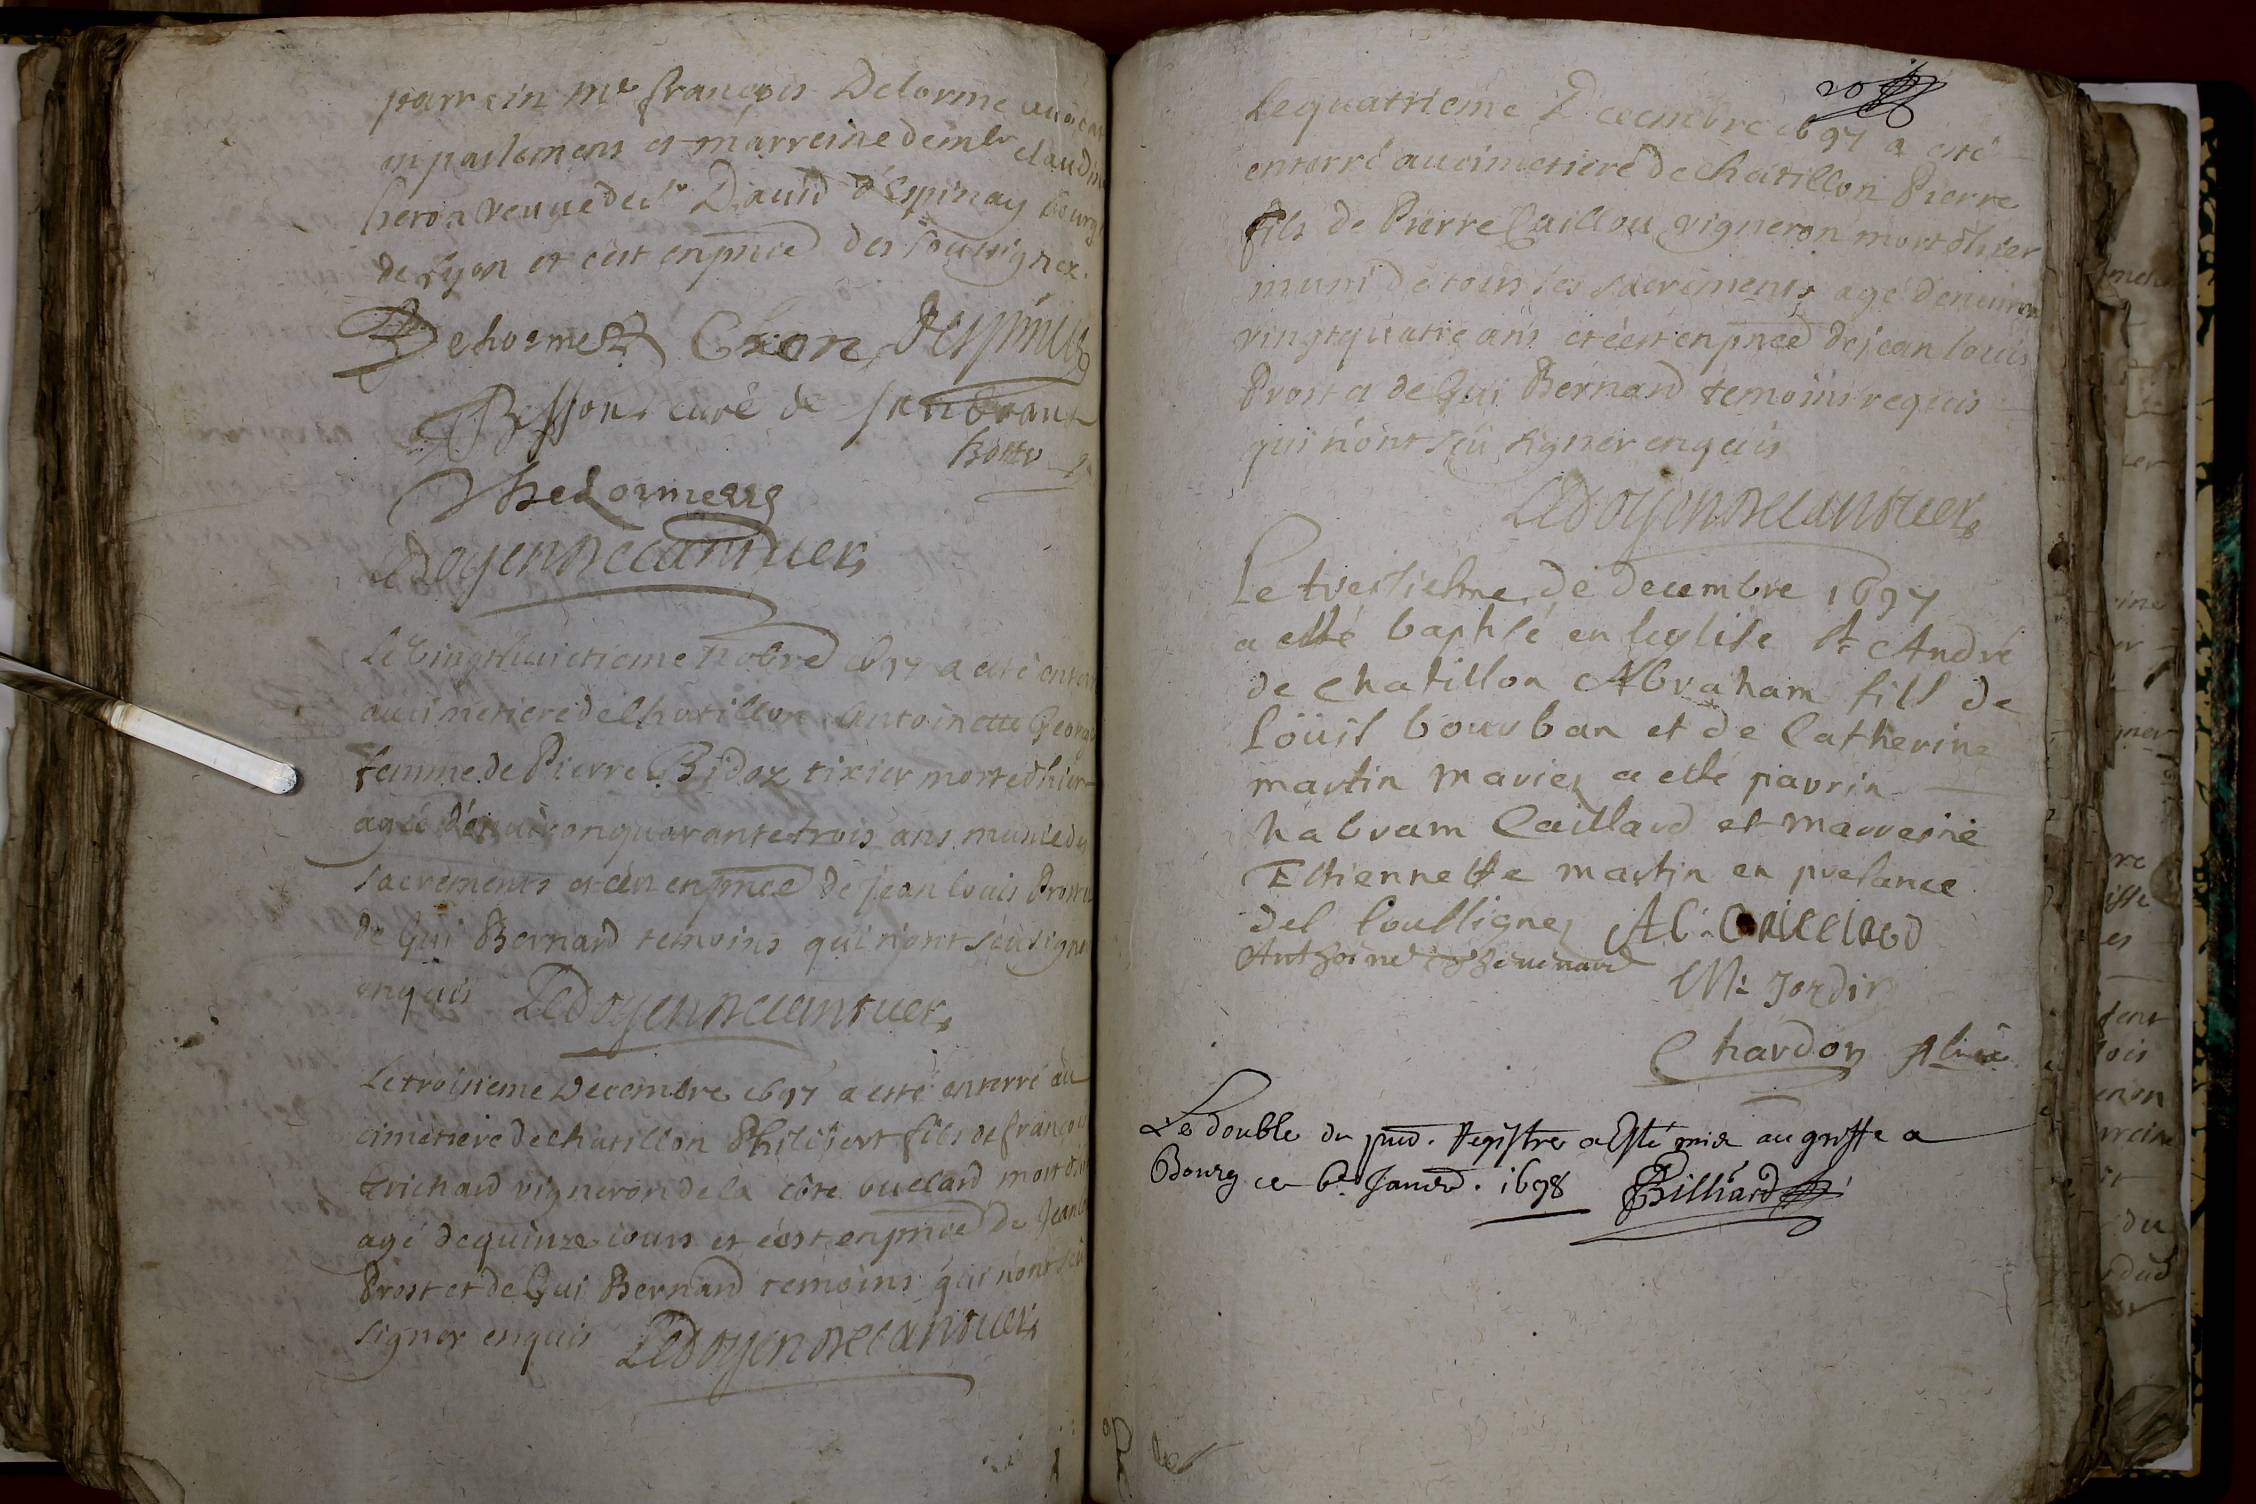 parrein mre francois Delorme
en parlement et marreine demle claudine
heron veuve de sr David d'Espinay bourg
de Lyon et c'est enpnce des soussignez.
Delhorme Cheron Despinay
Besson curé de
Delorme
Le Doyen De
Le vingthuictieme nobre 1697 a esté enterré
au cimetiere de Chatillon Antoinette George
femme de Pierre Bidoz tixier morte d'hier
agée d'environ quarante trois ans munie des
sacrements et c'est enpnce de Jean Louis Prost et
de Gui Bernard temoins qui n'ont sceu signer
enquis Le Doyen De
Le troisieme Decembre 1697 a esté enterré au
cimetiere de Chatillon Philibert fils de françois
Trichard vigneron de la côte mort d'hier
agé de quinze jours et c'est enpnce de Jean Louis
Prost et de Gui Bernard temoins qui n'ont sceu
signer enquis Le Doyen De
20
Le quatrieme Decembre 1697 a esté
enterré au cimetiere de Chatillon Pierre
fils de Pierre Caillou vigneron mort d'hier
muni de tous les sacrements agé d'environ
vingtquatre ans et c'est enpnce de jean louis
Prost et de Gui Bernard temoins requis
qui n'ont sçu signer enquis
Le Doyen De
Le tresiesme de decembre 1697
a esté baptisé en leglise st André
de Chatillon Abraham fils de
Loüis bourban et de Catherine
martin mariez a esté parrin
habram Caillard et marreine
Estiennette martin en presance
des soussignez Ab. Caillard
Anthoine
M: Jordin
Chardon
Le double du pnt. Registre a Esté mis au greffe a
Bourg ce 6e Janvr. 1698 Billiard